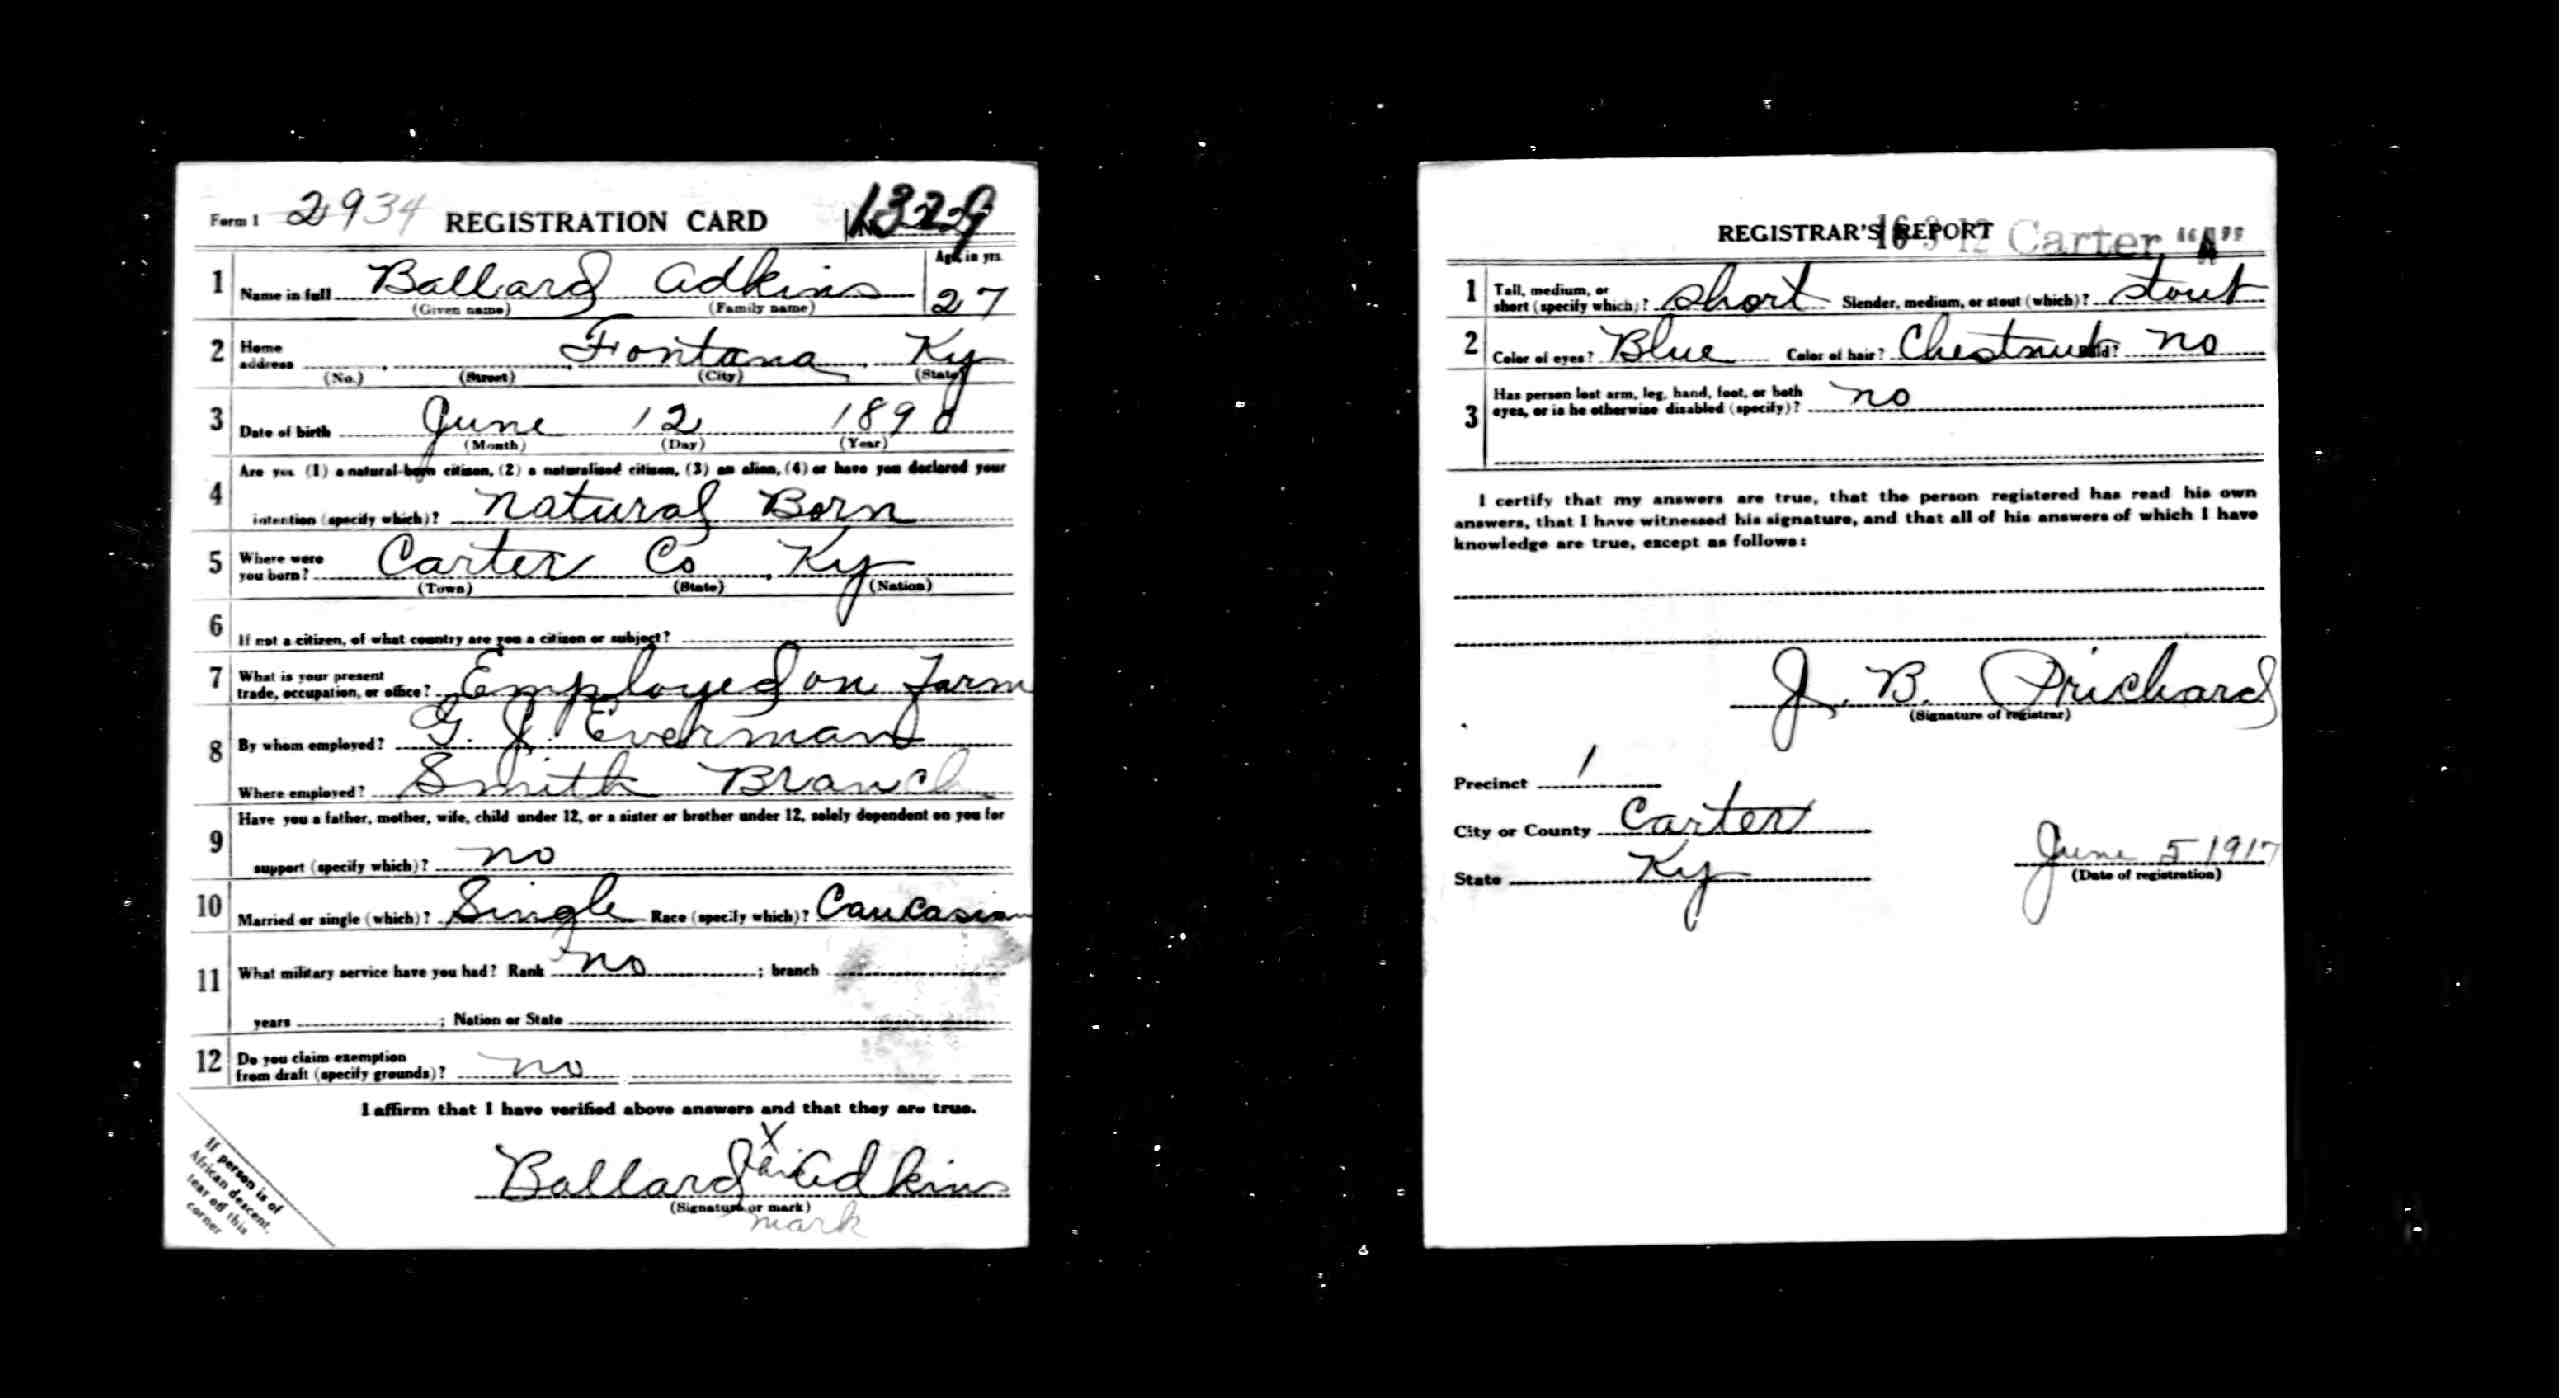 Form 1 2934 REGISTRATION CARD No. 1329
1 Name in full Ballard Adkins Age, in yrs. 27
(Given name) (Family name)
2 Home address Fontana, Ky
(No.) (Street) (City) (State)
3 Date of birth June 12 1890
(Month) (Day) (Year)
4 Are you (1) a natural-born citizen, (2) a naturalized citizen, (3) an alien, (4) or have you declared your
intention (specify which)? Natural Born
5 Where were you born? Carter Co, Ky
(Town) (State) (Nation)
6 If not a citizen, of what country are you a citizen or subject?
7 What is your present trade, occupation, or office? Employed on Farm
8 By whom employed? G. J. Everman
Where employed? Smith Branch
9 Have you a father, mother, wife, child under 12, or a sister or brother under 12, solely dependent on you for
support (specify which)? no
10 Married or single (which)? Single Race (specify which)? Caucasian
11 What military service have you had? Rank no ; branch
years ; Nation or State
12 Do you claim exemption from draft (specify grounds)? no
I affirm that I have verified above answers and that they are true.
X
Ballard his Adkins
(Signature or mark)
mark
If person is of
African descent,
tear off this
corner
REGISTRAR'S REPORT 16-3-12 Carter "A"
1 Tall, medium, or short (specify which)? Short Slender, medium, or stout (which)? Stout
2 Color of eyes? Blue Color of hair? Chestnut Bald? no
3 Has person lost arm, leg, hand, foot, or both
eyes, or is he otherwise disabled (specify)? no
I certify that my answers are true, that the person registered has read his own
answers, that I have witnessed his signature, and that all of his answers of which I have
knowledge are true, except as follows:
J. B. Prichard
(Signature of registrar)
Precinct 1
City or County Carter
State Ky
June 5 1917
(Date of registration)